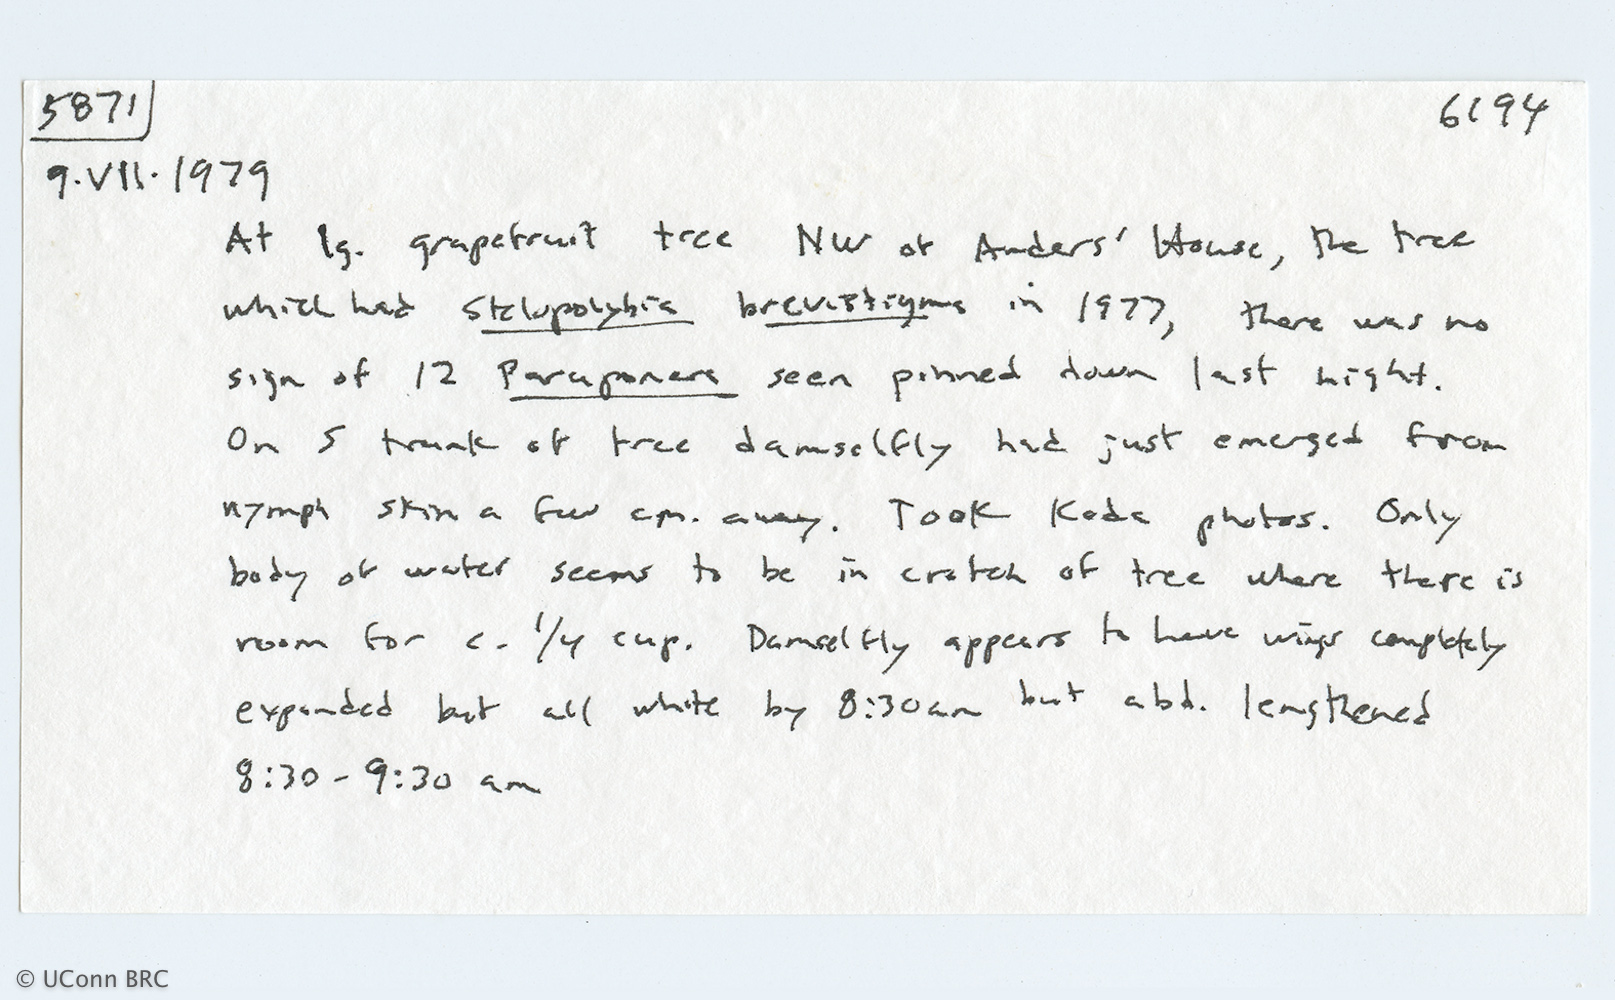 5871 6194
9.VII.1979
At lg. grapefruit tree NW of Anders' House, the tree
which had Stelopolybia brevistigma in 1977, there was no
sign of 12 Paraponera seen pinned down last night.
On S trunk of tree damselfly had just emerged from
nymph skin a few cm. away. Took Koda photos. Only
body of water seems to be in crotch of tree where there is
room for c. 1/4 cup. Damselfly appears to have wings completely
expanded but all white by 8:30am but abd. lengthened
8:30-9:30 am
© UConn BRC